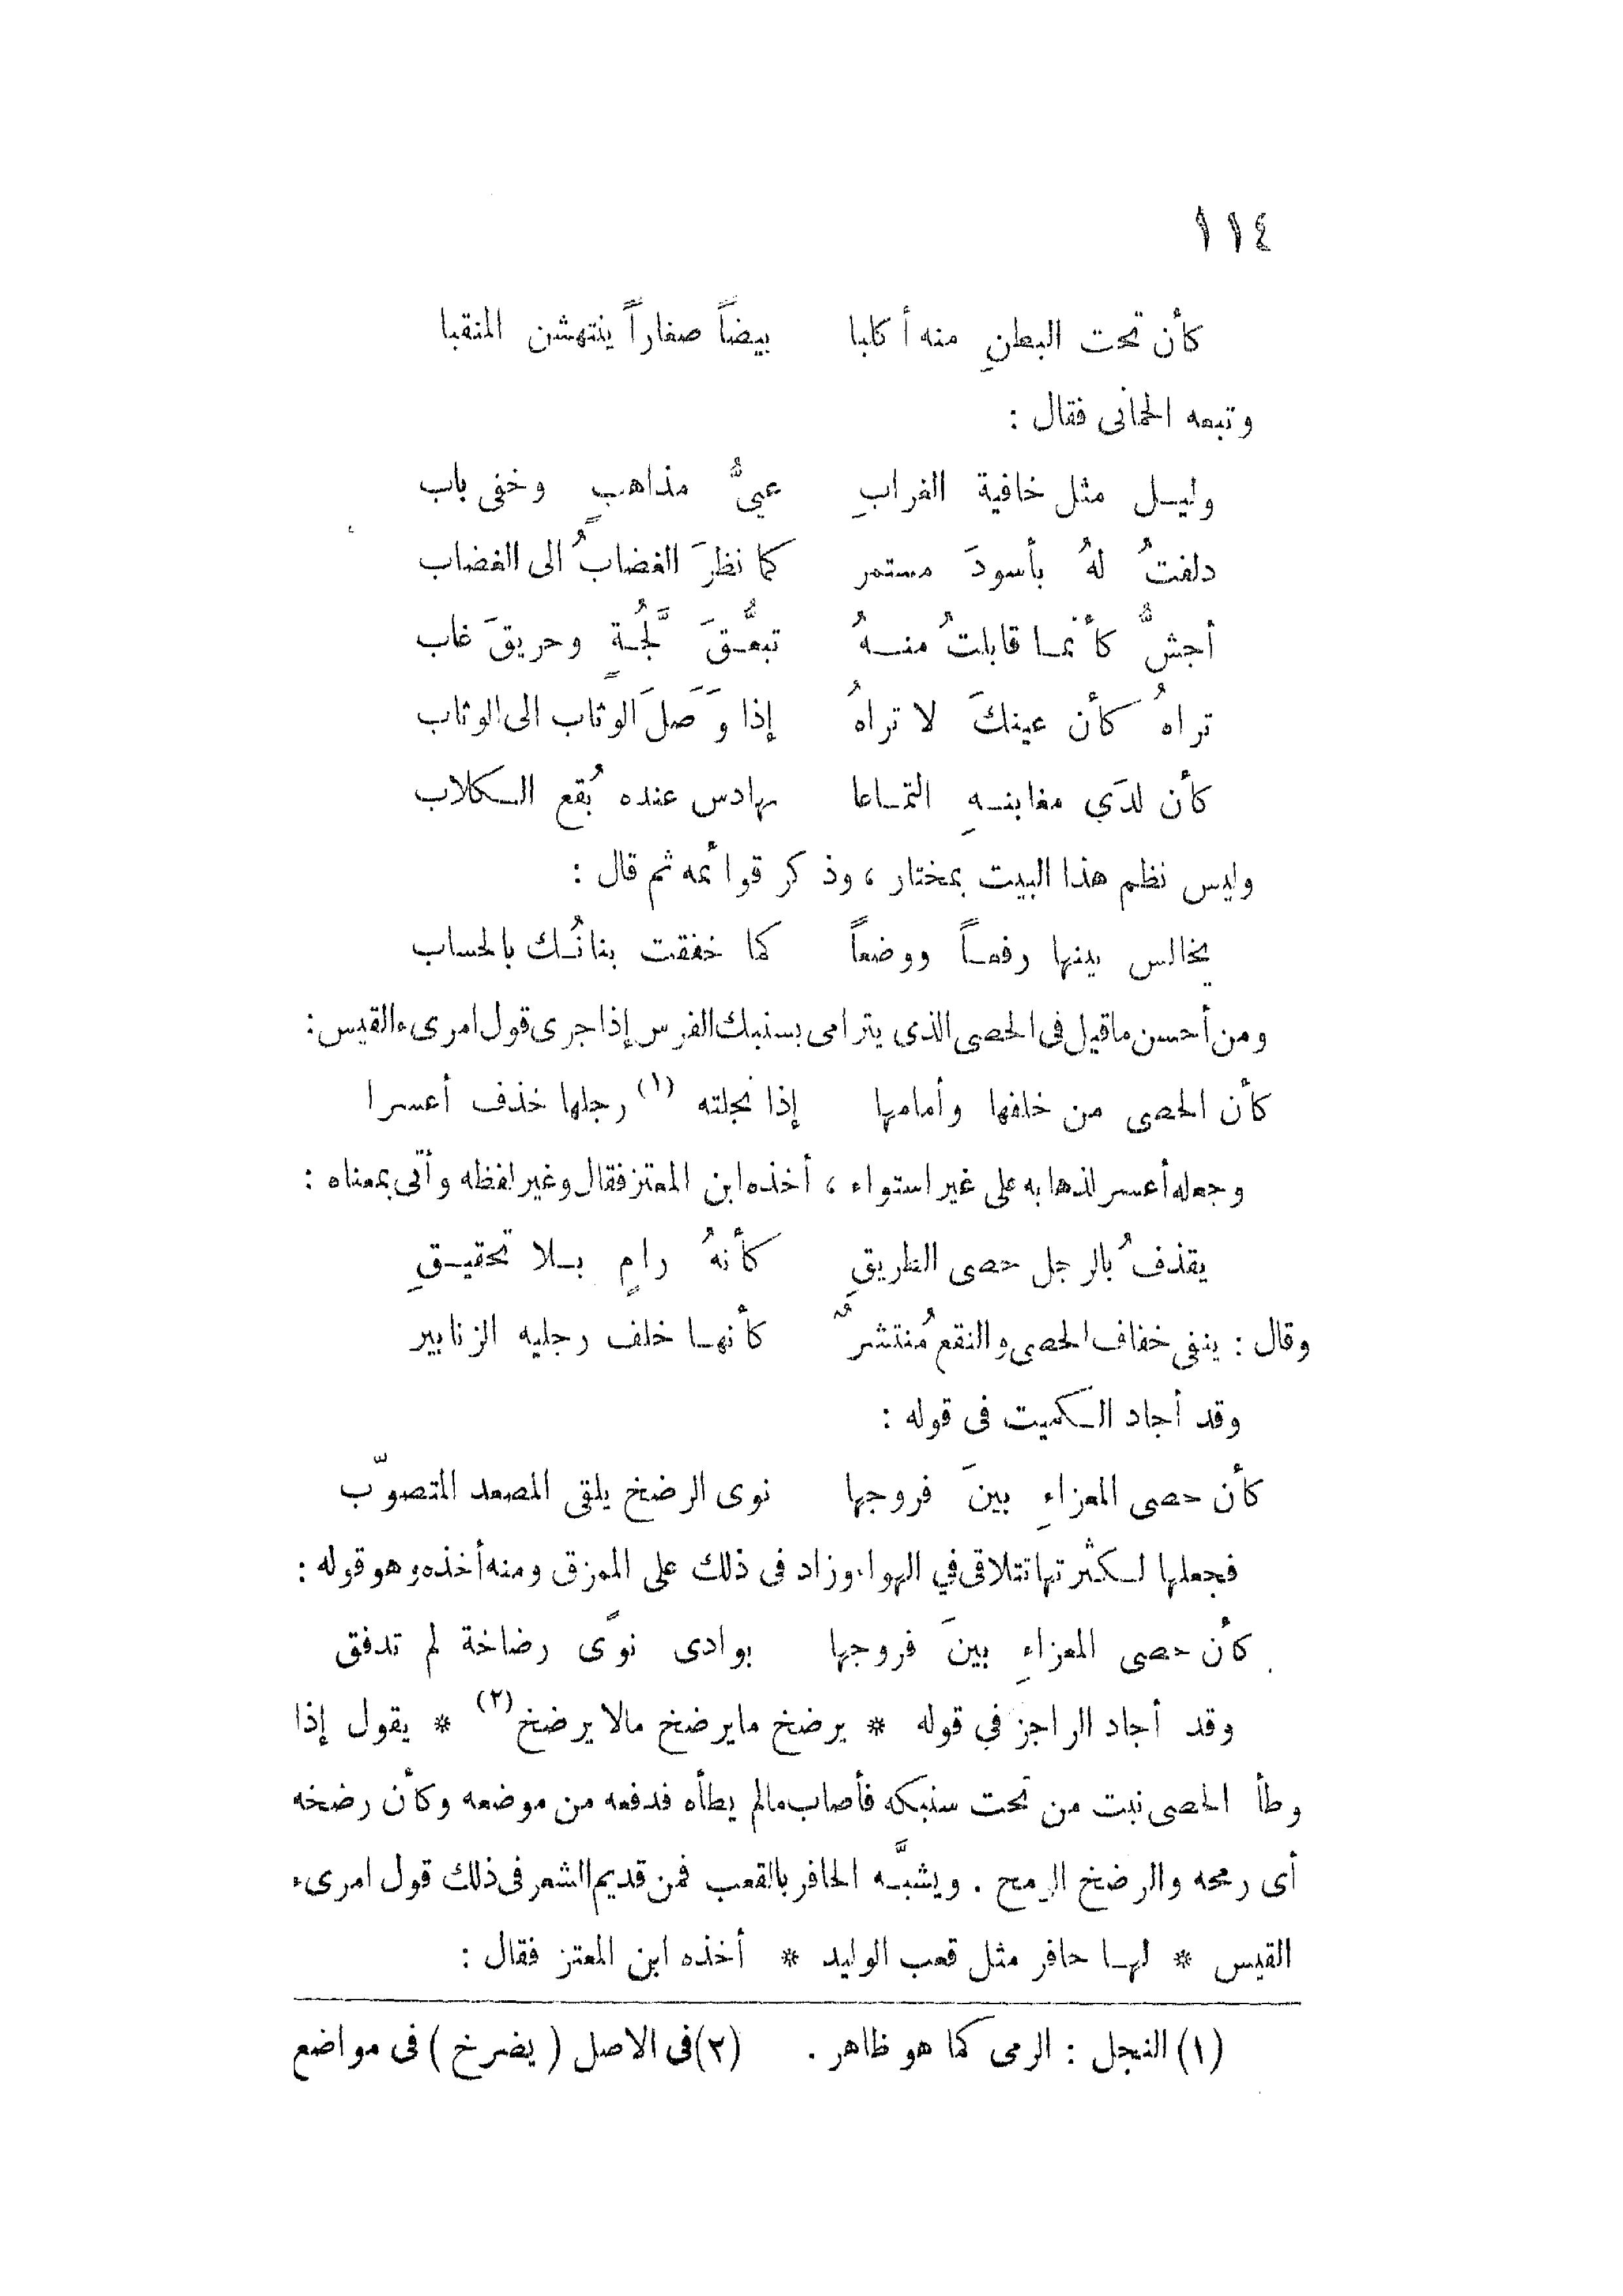 ١١٤
كأن تحت البطنِ منه أكلبا بيضاً صغاراً ينتهشن المنقبا
وتبعه الحمانى فقال :
وليـل مثل خافية الغرابِ عييُّ مذاهبٍ وخفى باب
دلفتُ لهُ بأسودَ مستمر كما نظرَ الغضابُ الى الغضاب
أجشُّ كأنمـا قابلتُ منـهُ تبعُّـقَ لَُّجـةٍ وحريقَ غاب
تراهُ كأن عينكَ لا تراهُ إذا وَصَلَ الوثاب الى الوثاب
كأن لدَي مغابنـهِ التمـاعا يهادس عنده بُقع الـكلاب
وليس نظم هذا البيت بمختار ، وذكر قوائمه ثم قال :
يخالس بينها رفعـاً ووضعاً كما خفقت بنانُـك بالحساب
ومن أحسن ماقيل فى الحصى الذى يترامى بسنبك الفرس إذا جرى قول امرىء القيس :
كأن الحصى من خلفها وأمامها إذا نجلته (١) رجلها خذف أعسرا
وجعله أعسر لذهابه على غير استواء ، أخذه ابن المعتز فقال وغير لفظه وأتى بمعناه :
يقذفُ بالرجل حصى الطريقِ كأنهُ رامٍ بـلا تحقيـقِ
وقال : ينفى خفاف الحصى والنقع مُنتشرٌ كأنهـا خلف رجليه الزنابير
وقد أجاد الـكميت فى قوله :
كأن حصى المعزاءِ بينَ فروجها نوى الرضخ يلقى المصعد المتصوّب
فجعلها لـكثرتها تتلاقى في الهواء وزاد فى ذلك على الممزق ومنه أخذه وهو قوله :
كأن حصى المعزاءِ بينَ فروجها بوادى نوًى رضاخة لم تدفق
وقد أجاد الراجز في قوله * يرضخ مايرضخ مالا يرضخ (٢) * يقول إذا
وطأ الحصى نبت من تحت سنبكه فأصاب مالم يطأه فدفعه من موضعه وكأن رضخه
أى رمحه والرضخ الرمح . ويشبَّـه الحافر بالقعب فمن قديم الشعر فى ذلك قول امرىء
القيس * لهـا حافر مثل قعب الوليد * أخذه ابن المعتز فقال :
(١) النجل : الرمى كما هو ظاهر . (٢) فى الاصل ( يضرخ ) فى مواضع